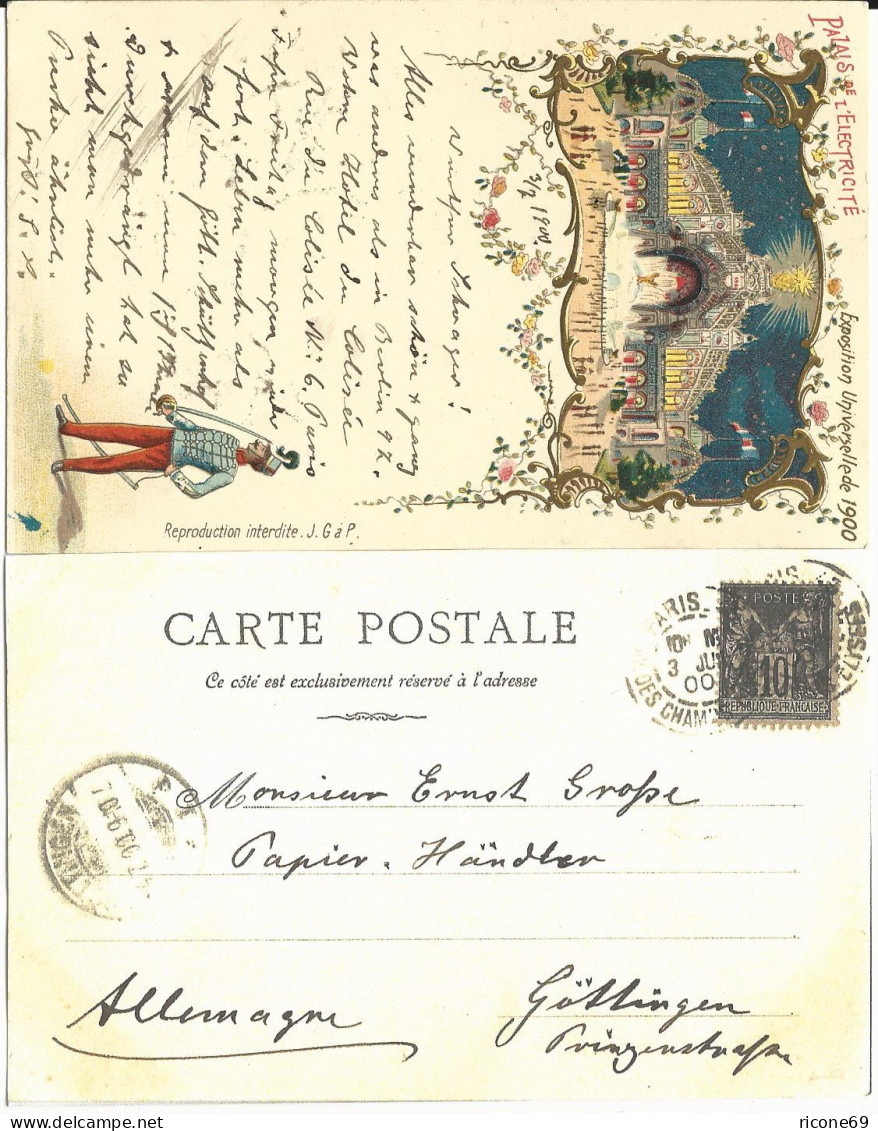 PALAIS DE L'ELECTRICITÉ
Exposition Universelle de 1900
3/7 1900
Werther Schwager!
Alles wunderbar schön & ganz
was anderes als in Berlin 9 Z.
Wohne Hotel du Colisée
Rue du Colisée No 6, Paris
Freitag morgen wieder
fort. Leben mehr als
auf dem Gött. Schützenhof
&
Durchgedrängt hat so
sieht man mehr einem
Pustie ähnlich.
Reproduction interdite. J. G à P.
CARTE POSTALE
Ce côté est exclusivement réservé à l'adresse
PARIS
3 JUIL
00
DES CHAMPS
POSTES
10
REPUBLIQUE FRANCAISE
Monsieur Ernst Große
Papier-Händler
Allemagne
Göttingen
Prinzenstraße
www.delcampe.net
ricone69